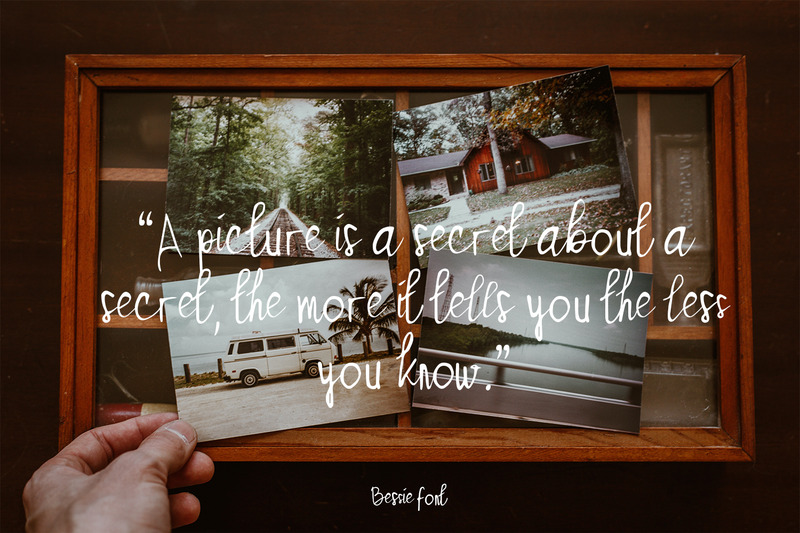 “A picture is a secret about a
secret, the more it tells you the less
you know.”
Bessie font